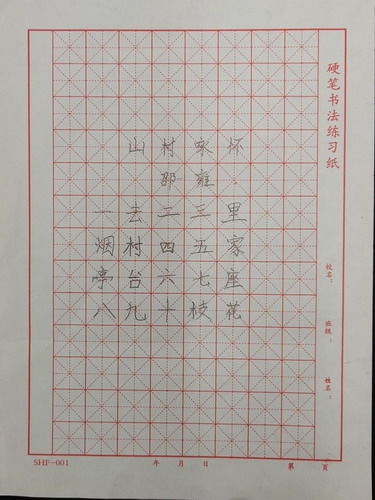 硬笔书法练习纸
山村咏怀
邵雍
一去二三里
烟村四五家
亭台六七座
八九十枝花
校名：
班级：
姓名：
SHF-001 年 月 日 第 页